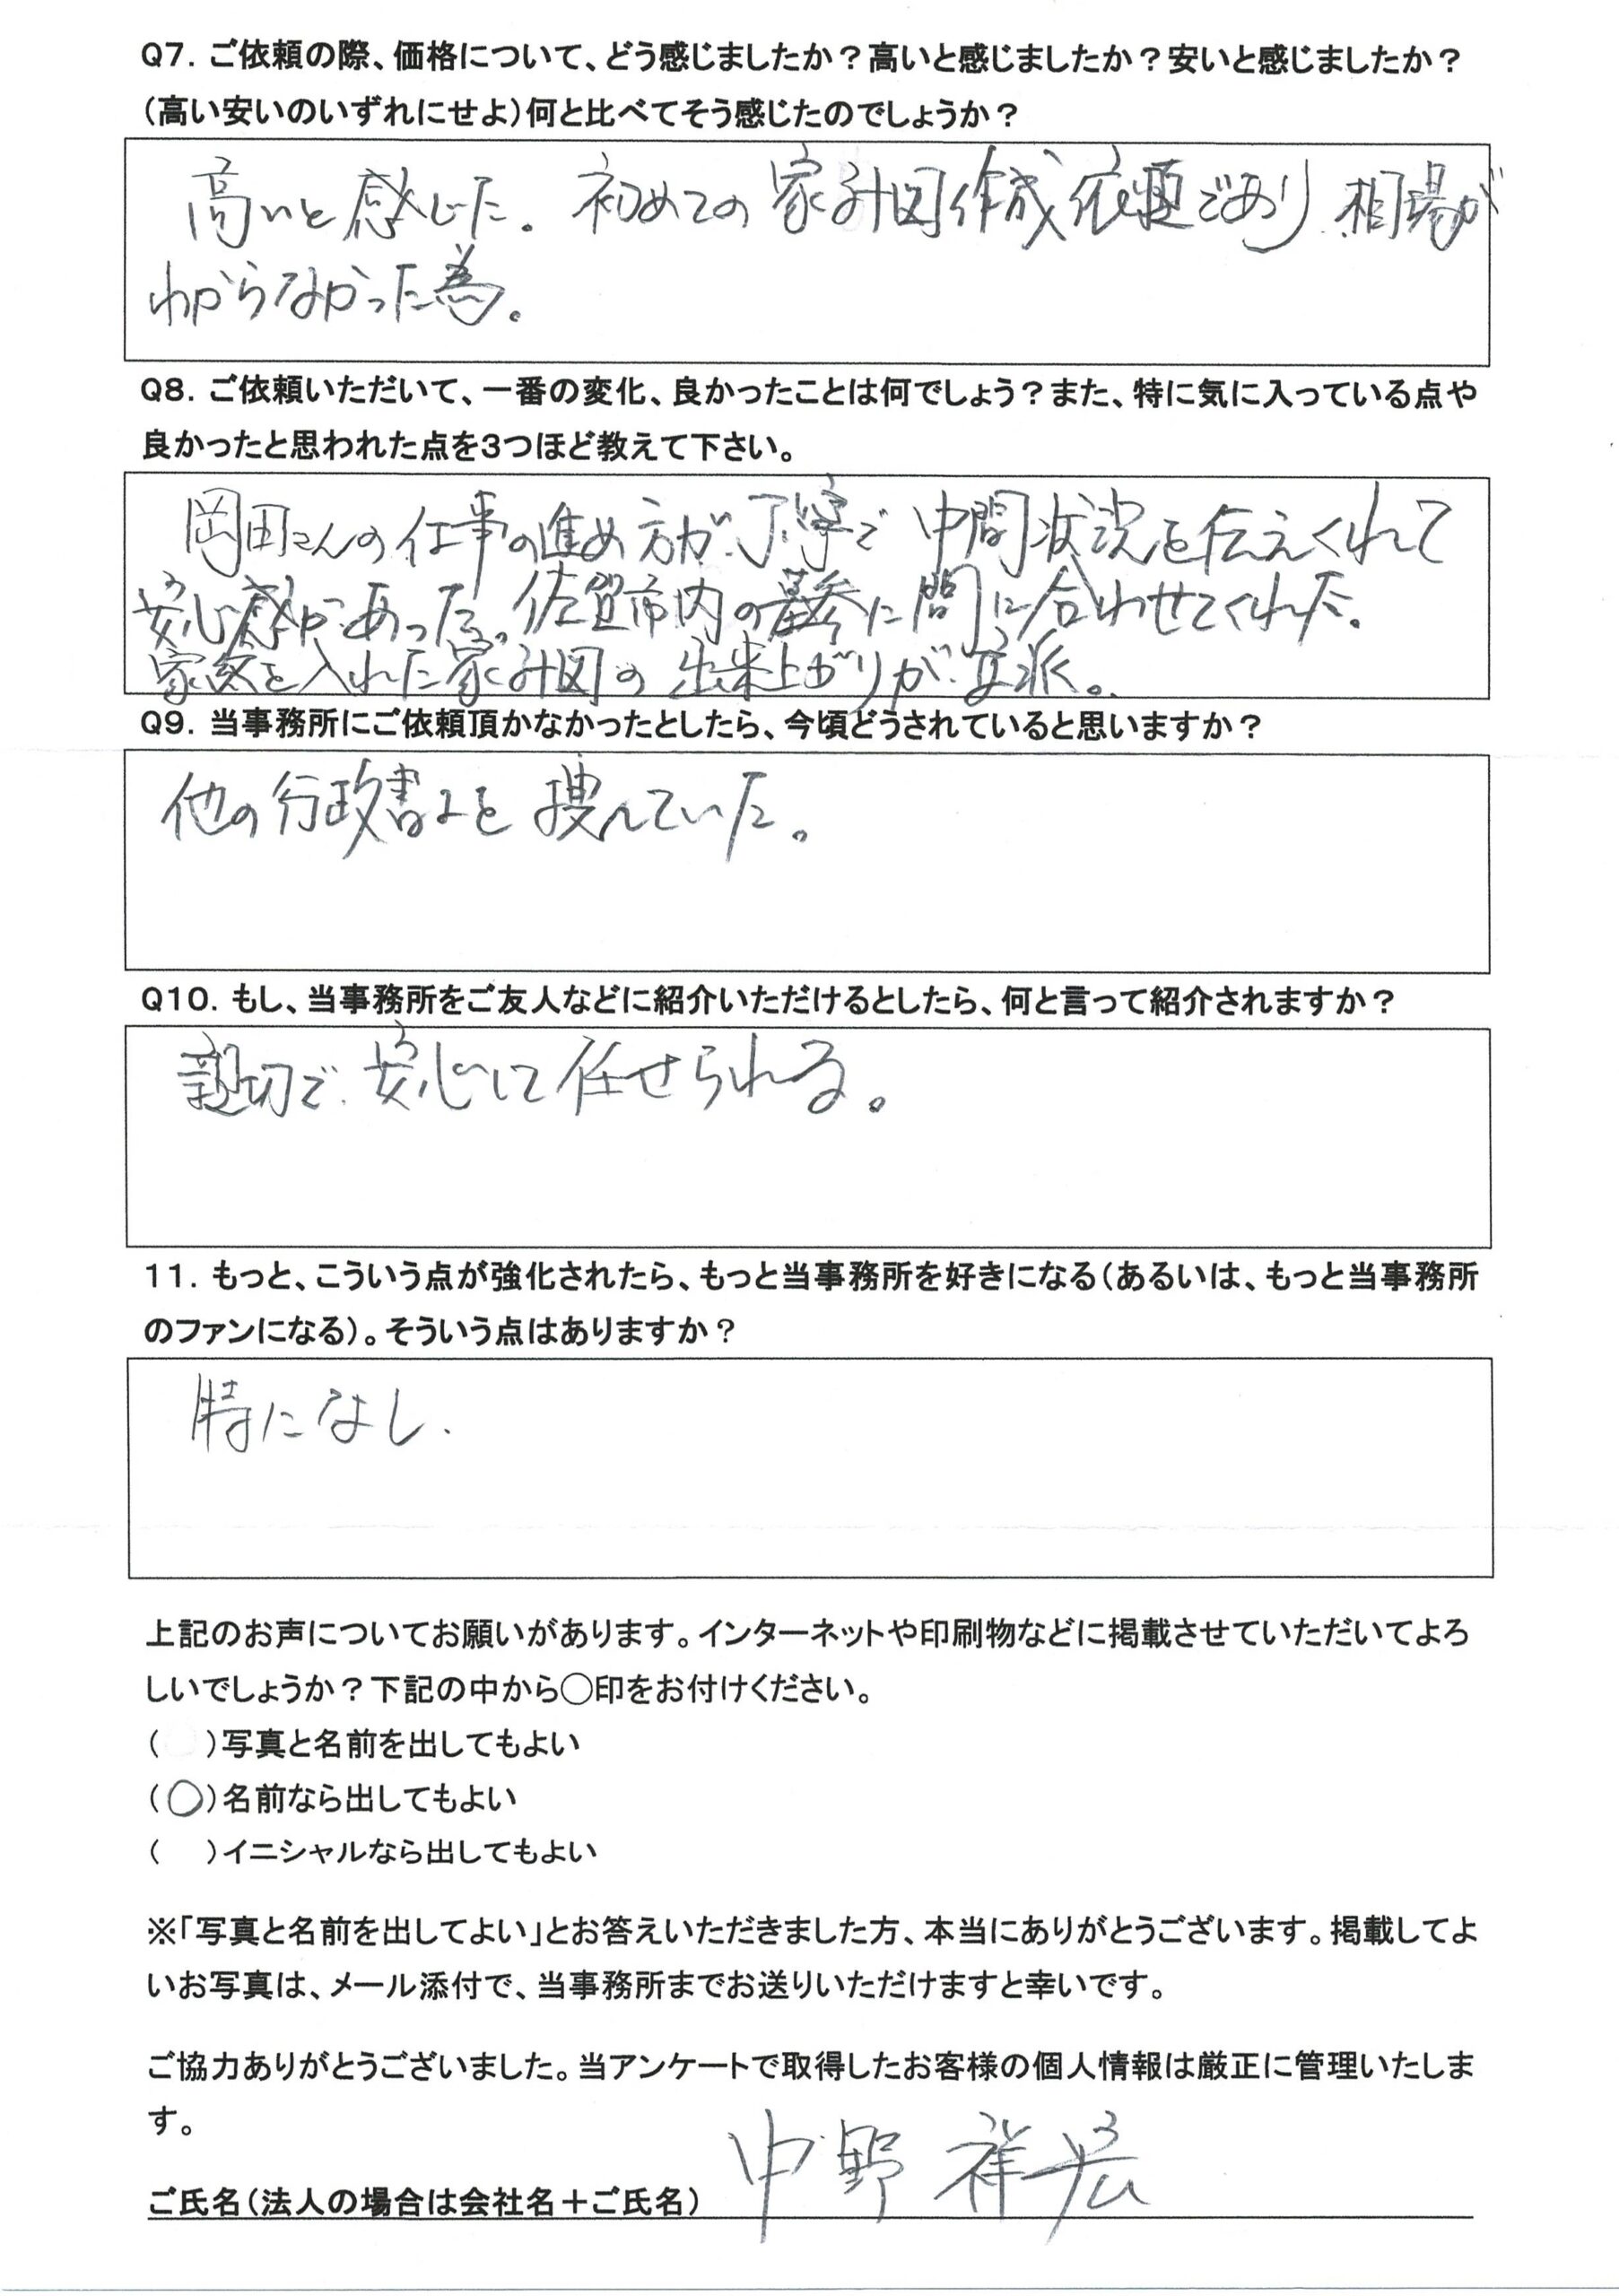 Q7. ご依頼の際、価格について、どう感じましたか？高いと感じましたか？安いと感じましたか？
（高い安いのいずれにせよ）何と比べてそう感じたのでしょうか？
高いと感じた。初めての家計図作成依頼であり、相場が
わからなかった為。
Q8. ご依頼いただいて、一番の変化、良かったことは何でしょう？また、特に気に入っている点や
良かったと思われた点を3つほど教えて下さい。
岡田さんの仕事の進め方が、丁寧で 中間状況を伝えくれて
安心感があった。佐賀市内の墓参に間に合わせてくれた。
家紋を入れた家計図の出来上がりが、立派。
Q9. 当事務所にご依頼頂かなかったとしたら、今頃どうされていると思いますか？
他の行政書士を捜していた。
Q10. もし、当事務所をご友人などに紹介いただけるとしたら、何と言って紹介されますか？
親切で、安心して任せられる。
11. もっと、こういう点が強化されたら、もっと当事務所を好きになる（あるいは、もっと当事務所
のファンになる）。そういう点はありますか？
特になし.
上記のお声についてお願いがあります。インターネットや印刷物などに掲載させていただいてよろ
しいでしょうか？下記の中から○印をお付けください。
（　）写真と名前を出してもよい
（○）名前なら出してもよい
（　）イニシャルなら出してもよい
※「写真と名前を出してよい」とお答えいただきました方、本当にありがとうございます。掲載してよ
いお写真は、メール添付で、当事務所までお送りいただけますと幸いです。
ご協力ありがとうございました。当アンケートで取得したお客様の個人情報は厳正に管理いたしま
す。
ご氏名（法人の場合は会社名＋ご氏名） 中野 祥宏